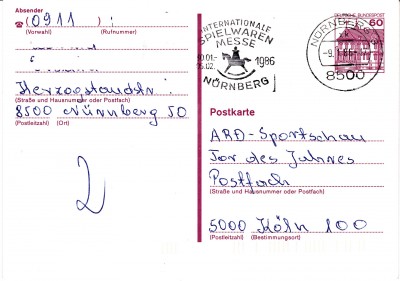 Absender
(0911)
(Vorwahl) (Rufnummer)
Herzogstandstr.
(Straße und Hausnummer oder Postfach)
8500 Nürnberg 50
(Postleitzahl) (Ort)
2
INTERNATIONALE
SPIELWAREN
MESSE
1986
NÜRNBERG
NÜRNBERG
8500
DEUTSCHE BUNDESPOST
60
Postkarte
ARD-Sportschau
Tor des Jahres
Postfach
(Straße und Hausnummer oder Postfach)
5000 Köln 100
(Postleitzahl) (Bestimmungsort)